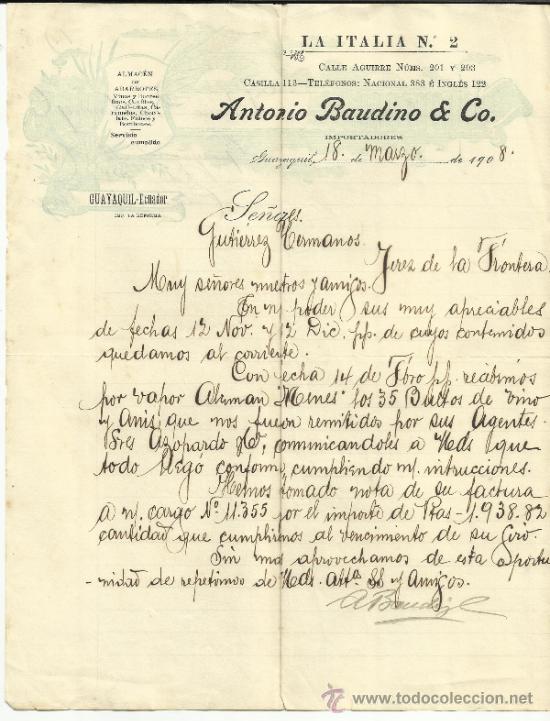 LA ITALIA N.º 2
CALLE AGUIRRE NÚMS. 201 Y 203
CASILLA 113—TELÉFONOS: NACIONAL 383 É INGLÉS 122
Antonio Baudino & Co.
IMPORTADORES
ALMACÉN
DE
ABARROTES,
Servicio
cumplido
GUAYAQUIL-Ecuador
Guayaquil, 18. de Marzo. de 1908.
Señres.
Gutiérrez Hermanos.
Jerez de la Frontera
Muy señores nuestros y amigos.
En n/ poder sus muy apreciables
de fechas 12 Nov. y 2 Dic. pp. de cuyos contenidos
quedamos al corriente.
Con fecha 14 de Fbro pp. recibimos
por vapor Aleman "Menes" los 35 Bultos de vino
y Anis que nos fueron remitidos por sus Agentes
Sres Azopardo y Co, comunicandoles a Uds que
todo llegó conforme cumpliendo n/. intrucciones.
Hemos tomado nota de su factura
a n/. cargo No. 11.355 por el importe de Ptas - 1.938.82
cantidad que cumplirmos al vencimento de su Giro.
Sin mas aprovechamos de esta oportu
-nidad de repetirnos de Uds. Attos SS y Amigos.
www.todocoleccion.net